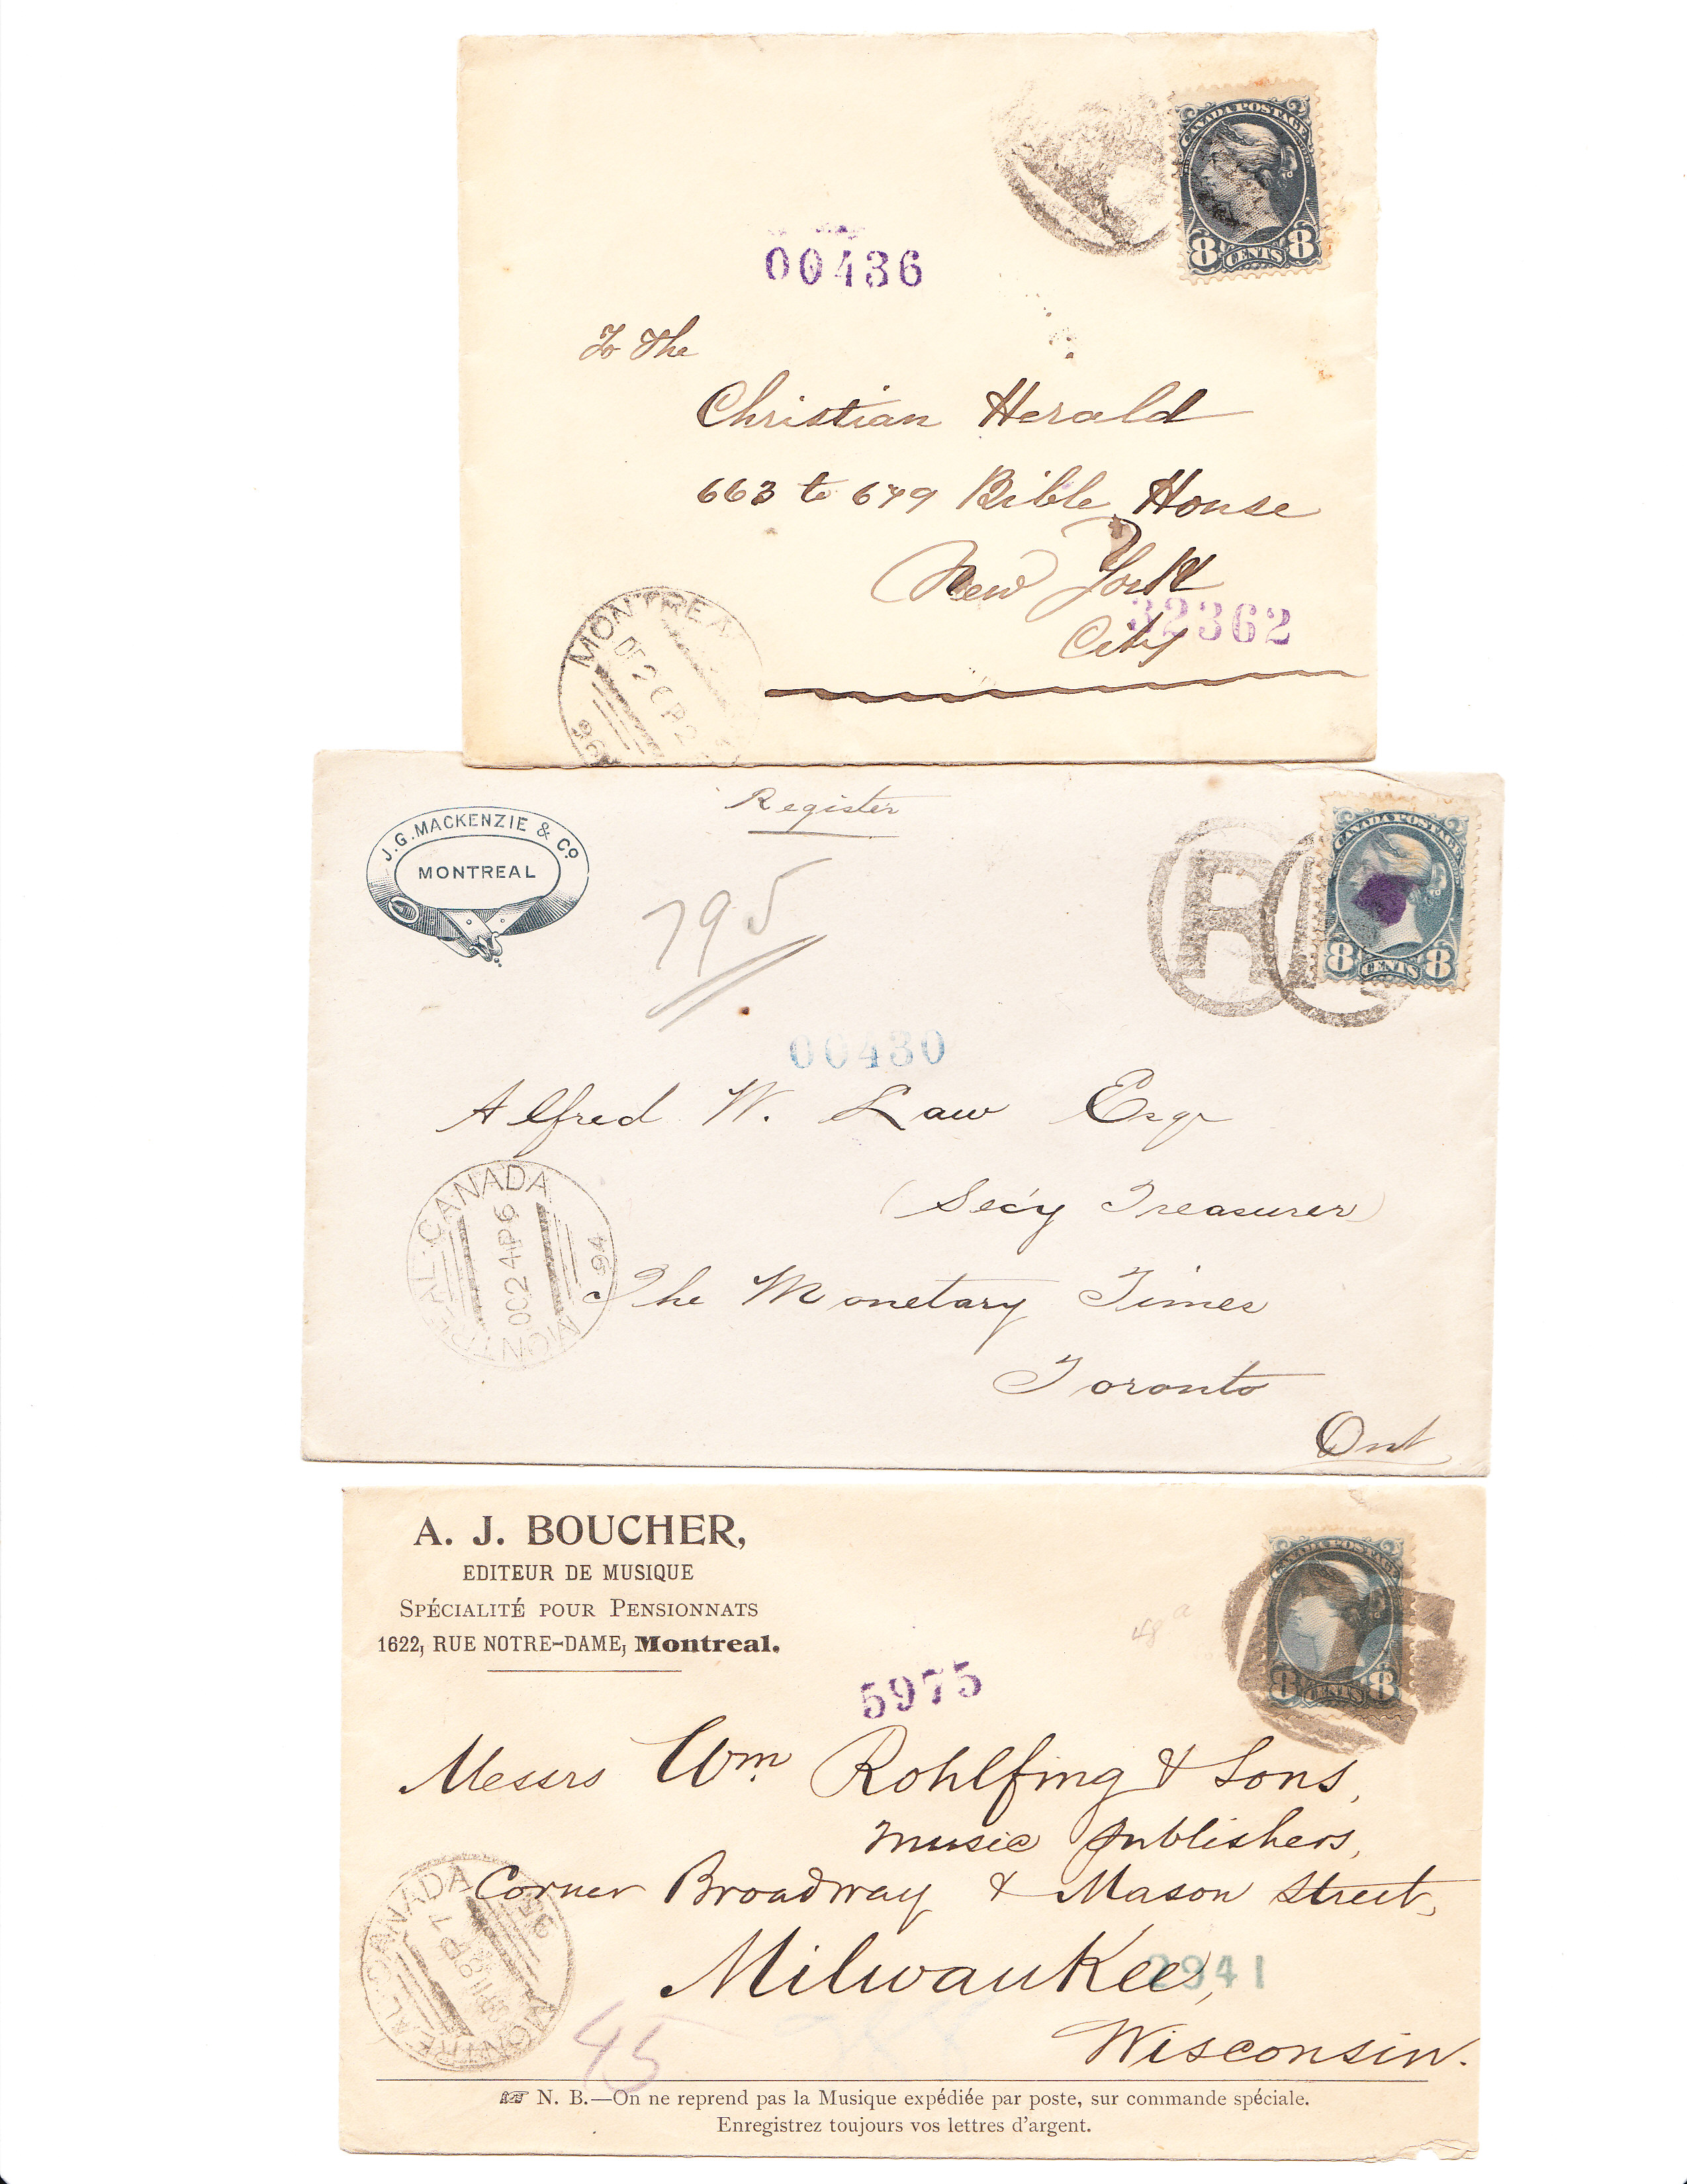 CANADA POSTAGE
8 CENTS 8
00436
To The
Christian Herald
663 to 679 Bible House
New York
32362
City
MONTREAL
96
Register
J. G. MACKENZIE & Co.
MONTREAL
CANADA POSTAGE
8 CENTS 8
R
795
00430
Alfred W. Law Esqr
(Secy Treasurer)
MONTREAL · CANADA
OC 24 P6
94
The Monetary Times
Toronto
Ont
A. J. BOUCHER,
EDITEUR DE MUSIQUE
SPÉCIALITÉ POUR PENSIONNATS
1622, RUE NOTRE-DAME, Montreal.
CANADA POSTAGE
8 CENTS 8
48a
5975
Messrs Wm. Rohlfing & Sons,
Music Publishers,
Corner Broadway & Mason Street,
Milwaukee,
2941
Wisconsin.
MONTREAL · CANADA
95
45
N. B.—On ne reprend pas la Musique expédiée par poste, sur commande spéciale.
Enregistrez toujours vos lettres d'argent.